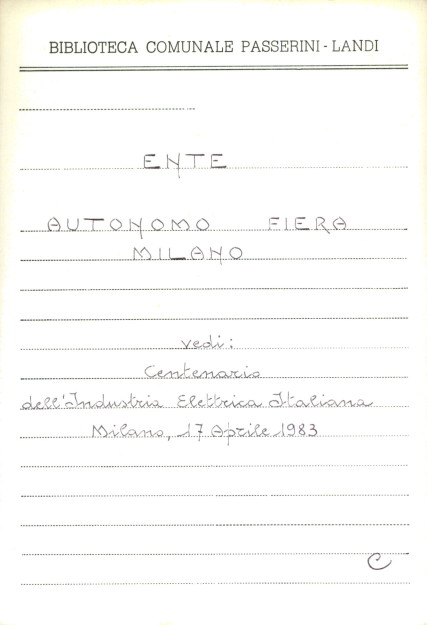 BIBLIOTECA COMUNALE PASSERINI - LANDI
ENTE
AUTONOMO FIERA
MILANO
vedi:
Centenario
dell'Industria Elettrica Italiana
Milano, 17 Aprile 1983
C